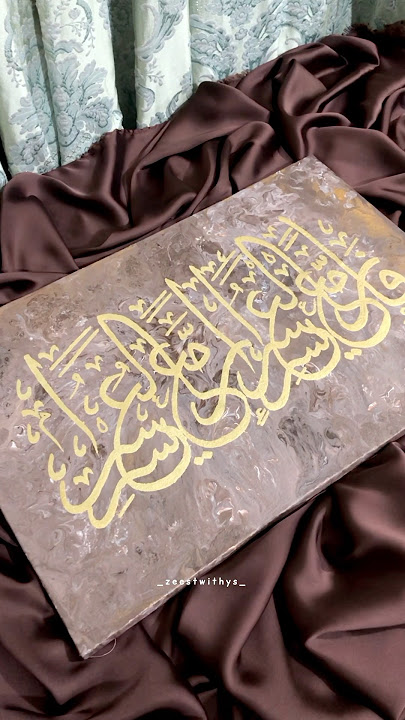 فَإِنَّ مَعَ الْعُسْرِ يُسْرًا إِنَّ مَعَ الْعُسْرِ يُسْرًا
_zeestwithys_